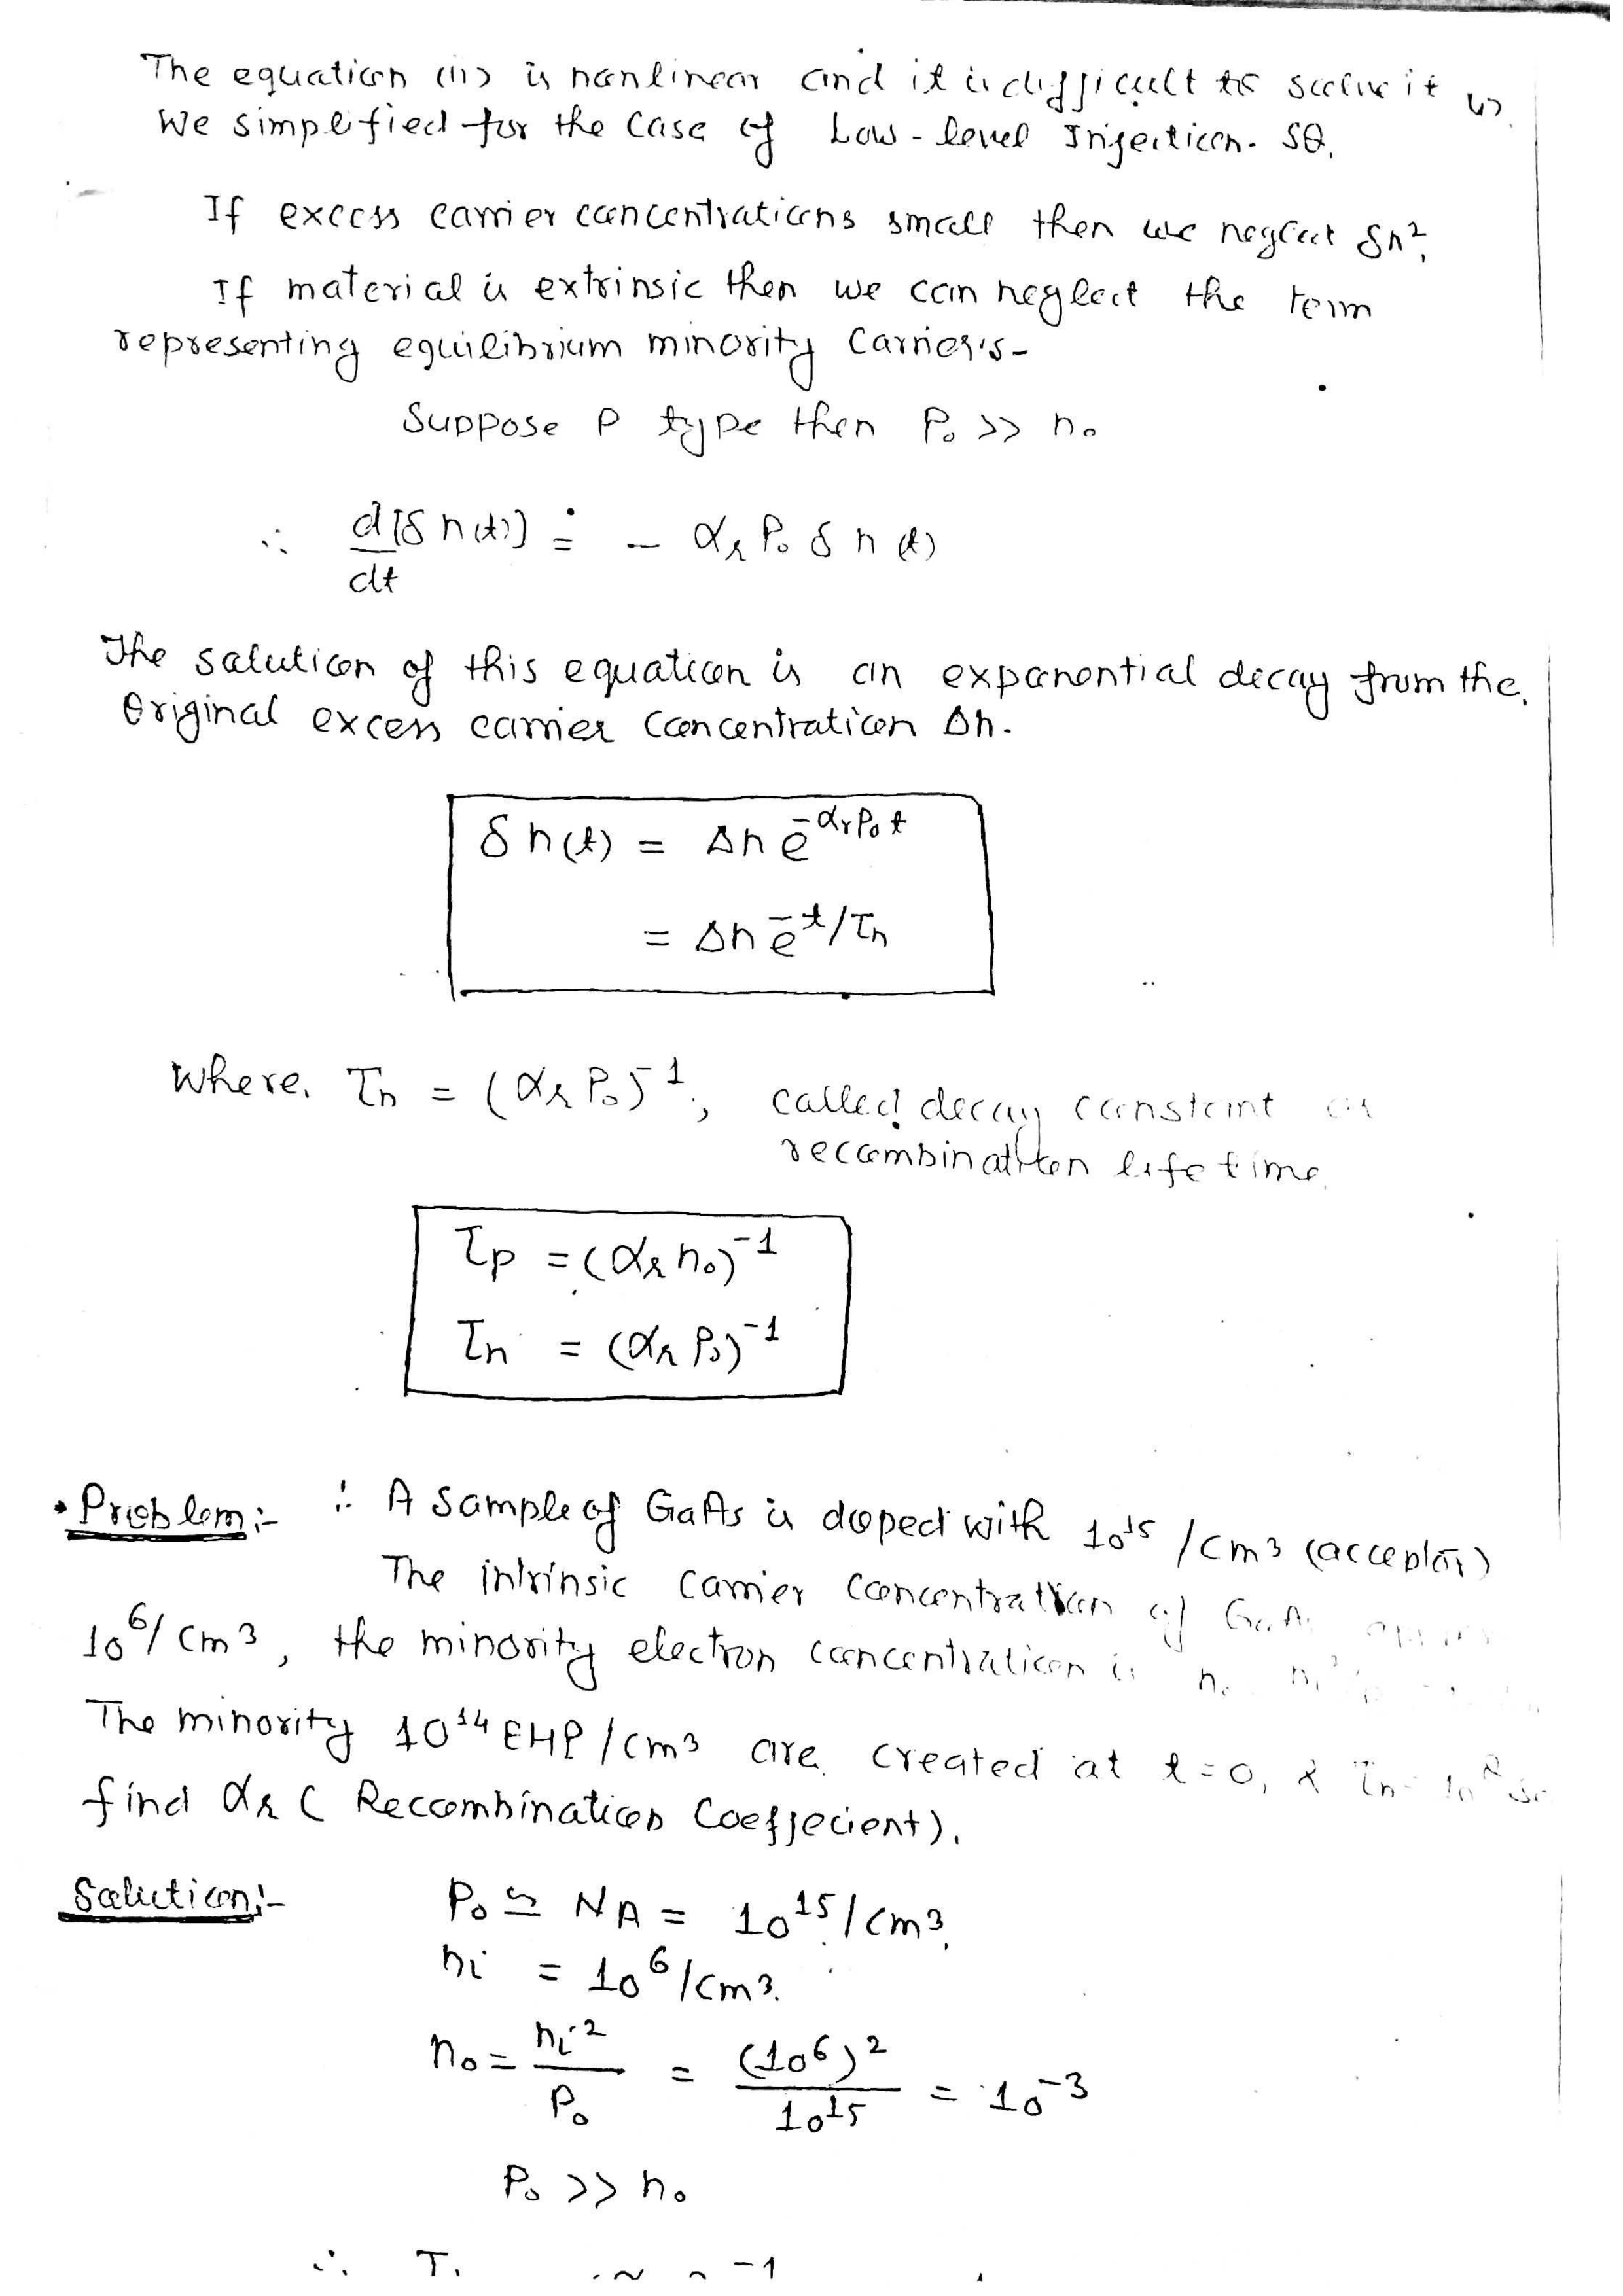 The equation (ii) is nonlinear and it is difficult to solve it
We simplified for the case of Low-level Injection. SO,
If excess carrier concentrations small then we neglect δn²,
If material is extrinsic then we can neglect the term
representing equilibrium minority carrier's-
Suppose P type then P₀ >> n₀
∴ d[δn(t)]/dt = - αᵣ P₀ δn(t)
The solution of this equation is an exponential decay from the,
Original excess carrier concentration Δn.
δn(t) = Δn e^-αᵣP₀t
= Δn e^-t/τₙ
Where, τₙ = (αᵣ P₀)⁻¹, called decay constant or
recombination life time
τₚ = (αᵣ n₀)⁻¹
τₙ = (αᵣ P₀)⁻¹
• Problem:- ∴ A Sample of GaAs is doped with 10¹⁵ /cm³ (acceptor)
The intrinsic carrier concentration of GaAs
10⁶/cm³, the minority electron concentration is n₀ nᵢ²
The minority 10¹⁴ EHP/cm³ are created at t=0, & τₙ
find αᵣ ( Reccombination Coeffecient).
Solution:- P₀ ≃ NA = 10¹⁵/cm³
ni = 10⁶/cm³.
n₀ = nᵢ²/P₀ = (10⁶)²/10¹⁵ = 10⁻³
P₀ >> n₀
∴